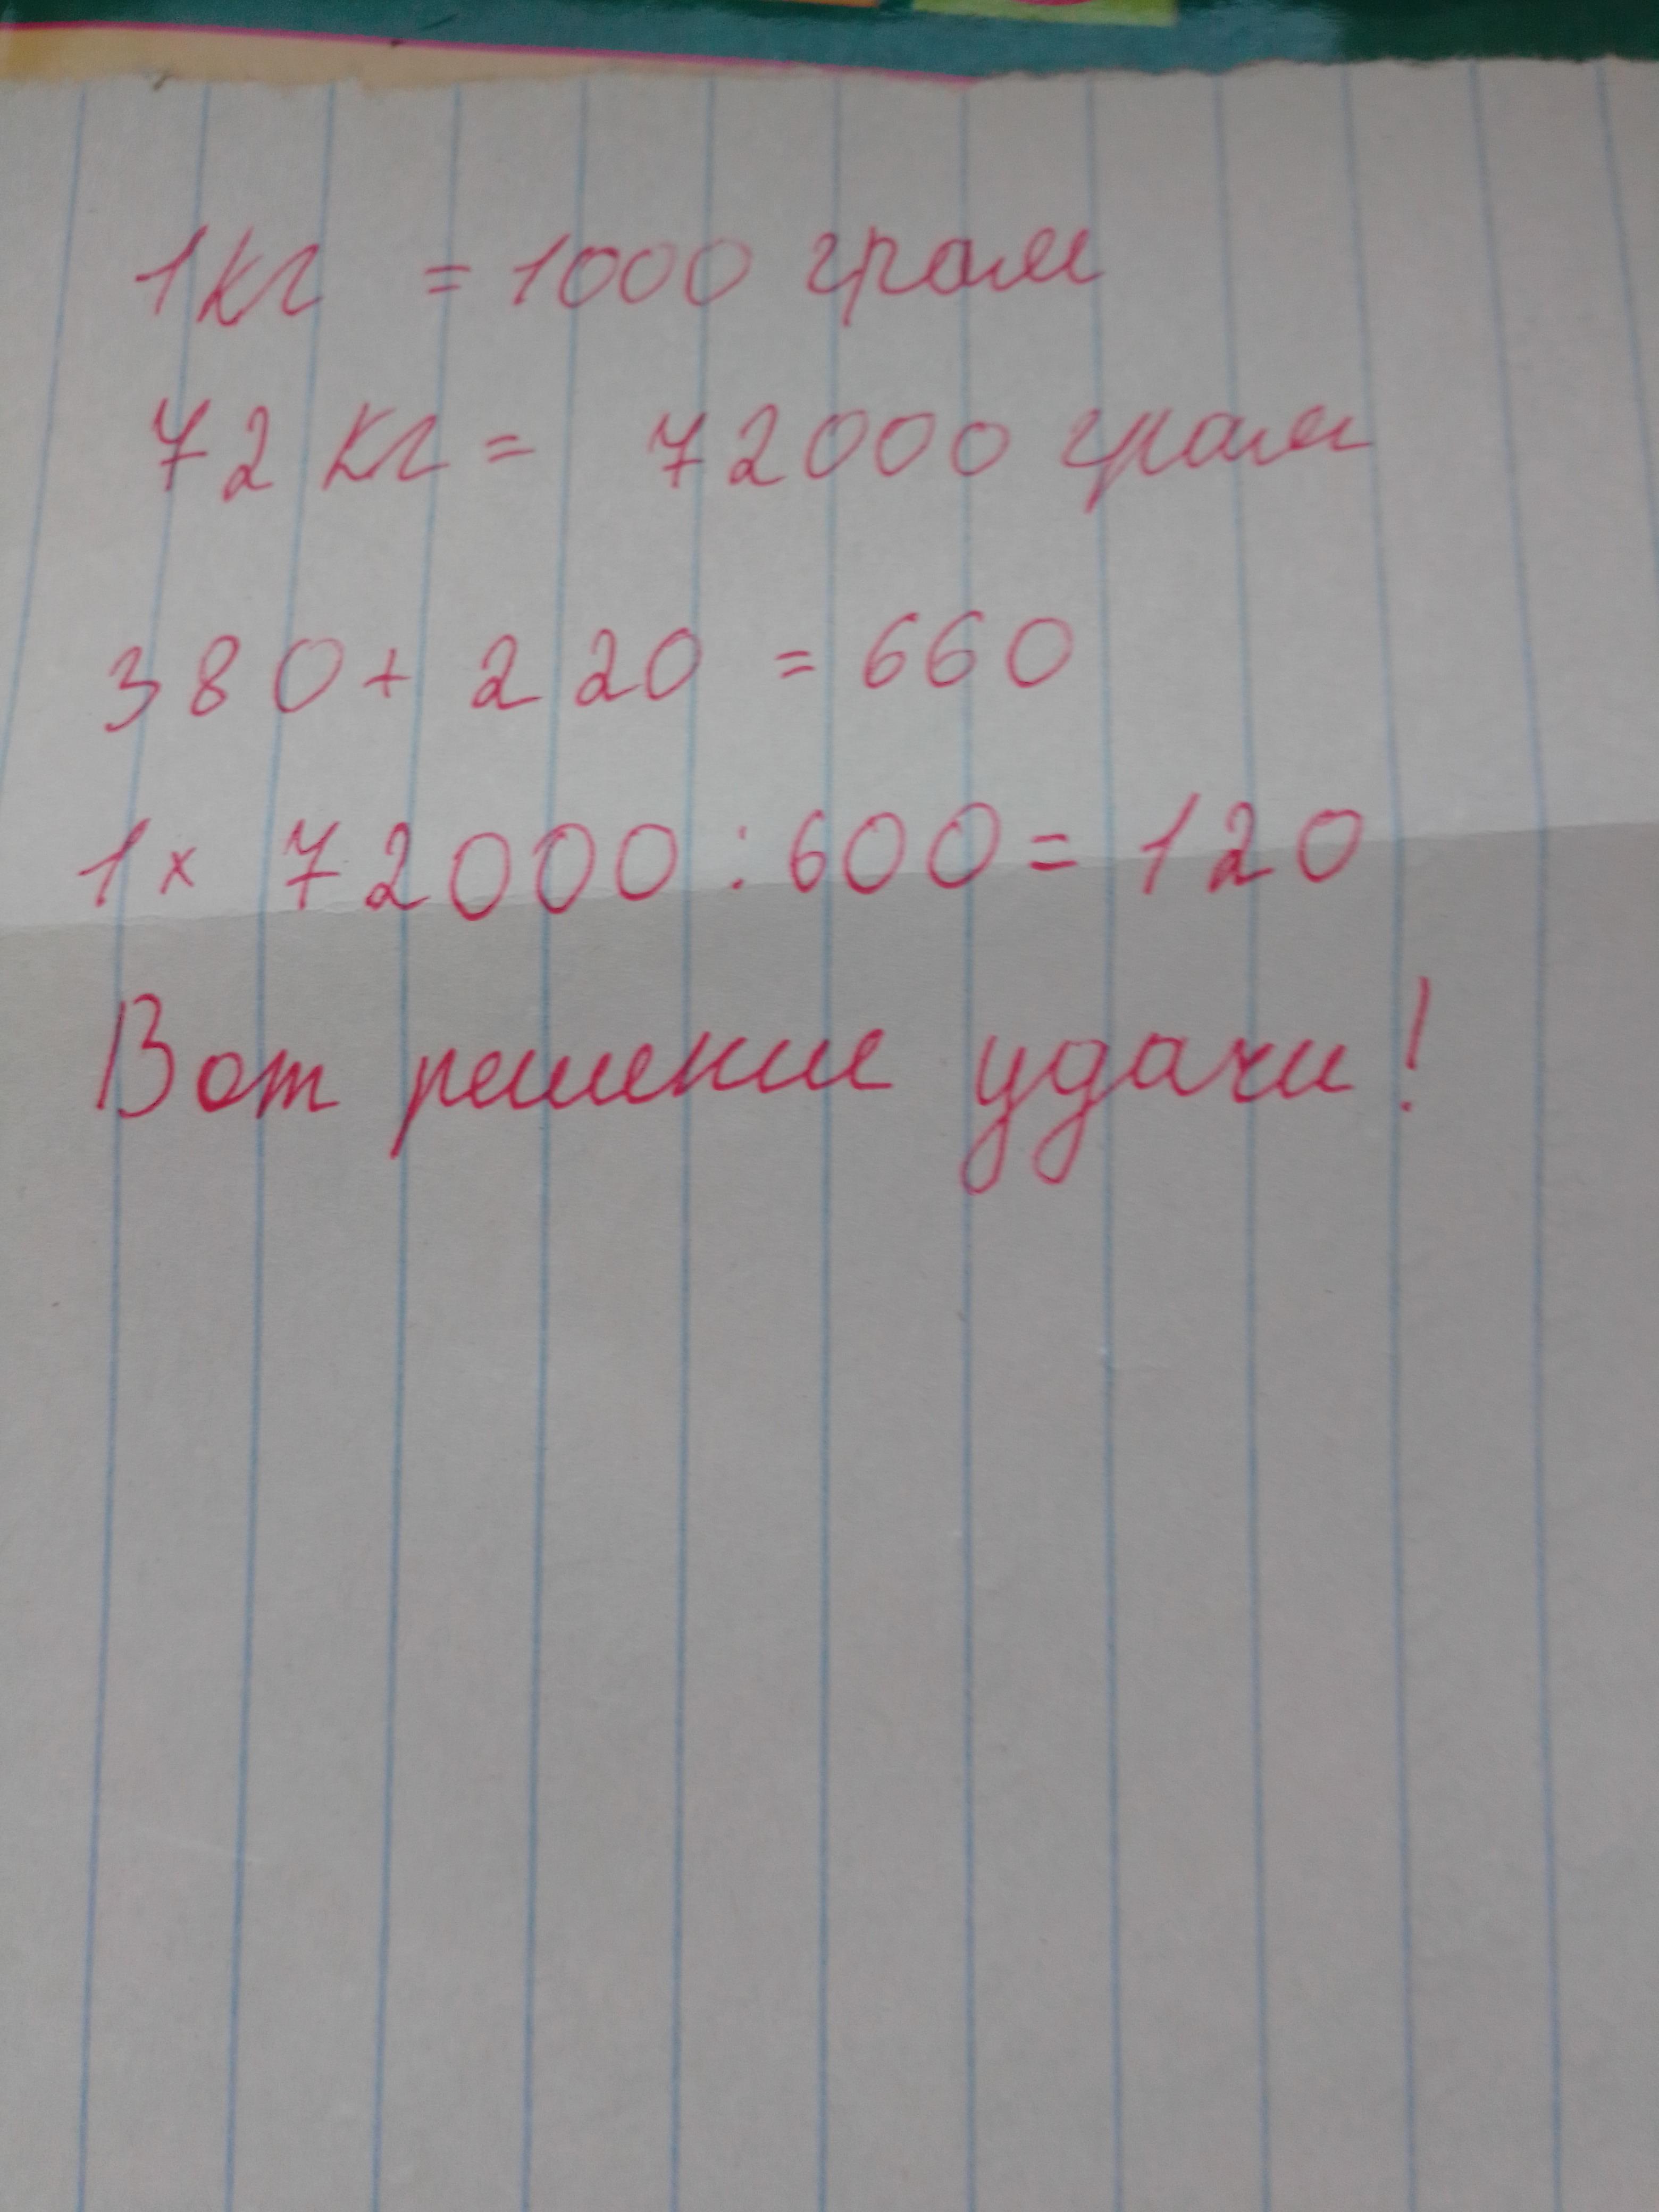 1кг = 1000 грам
72 кг = 72000 грам
380 + 220 = 660
1 x 72000 : 600 = 120
Вот решение удачи!